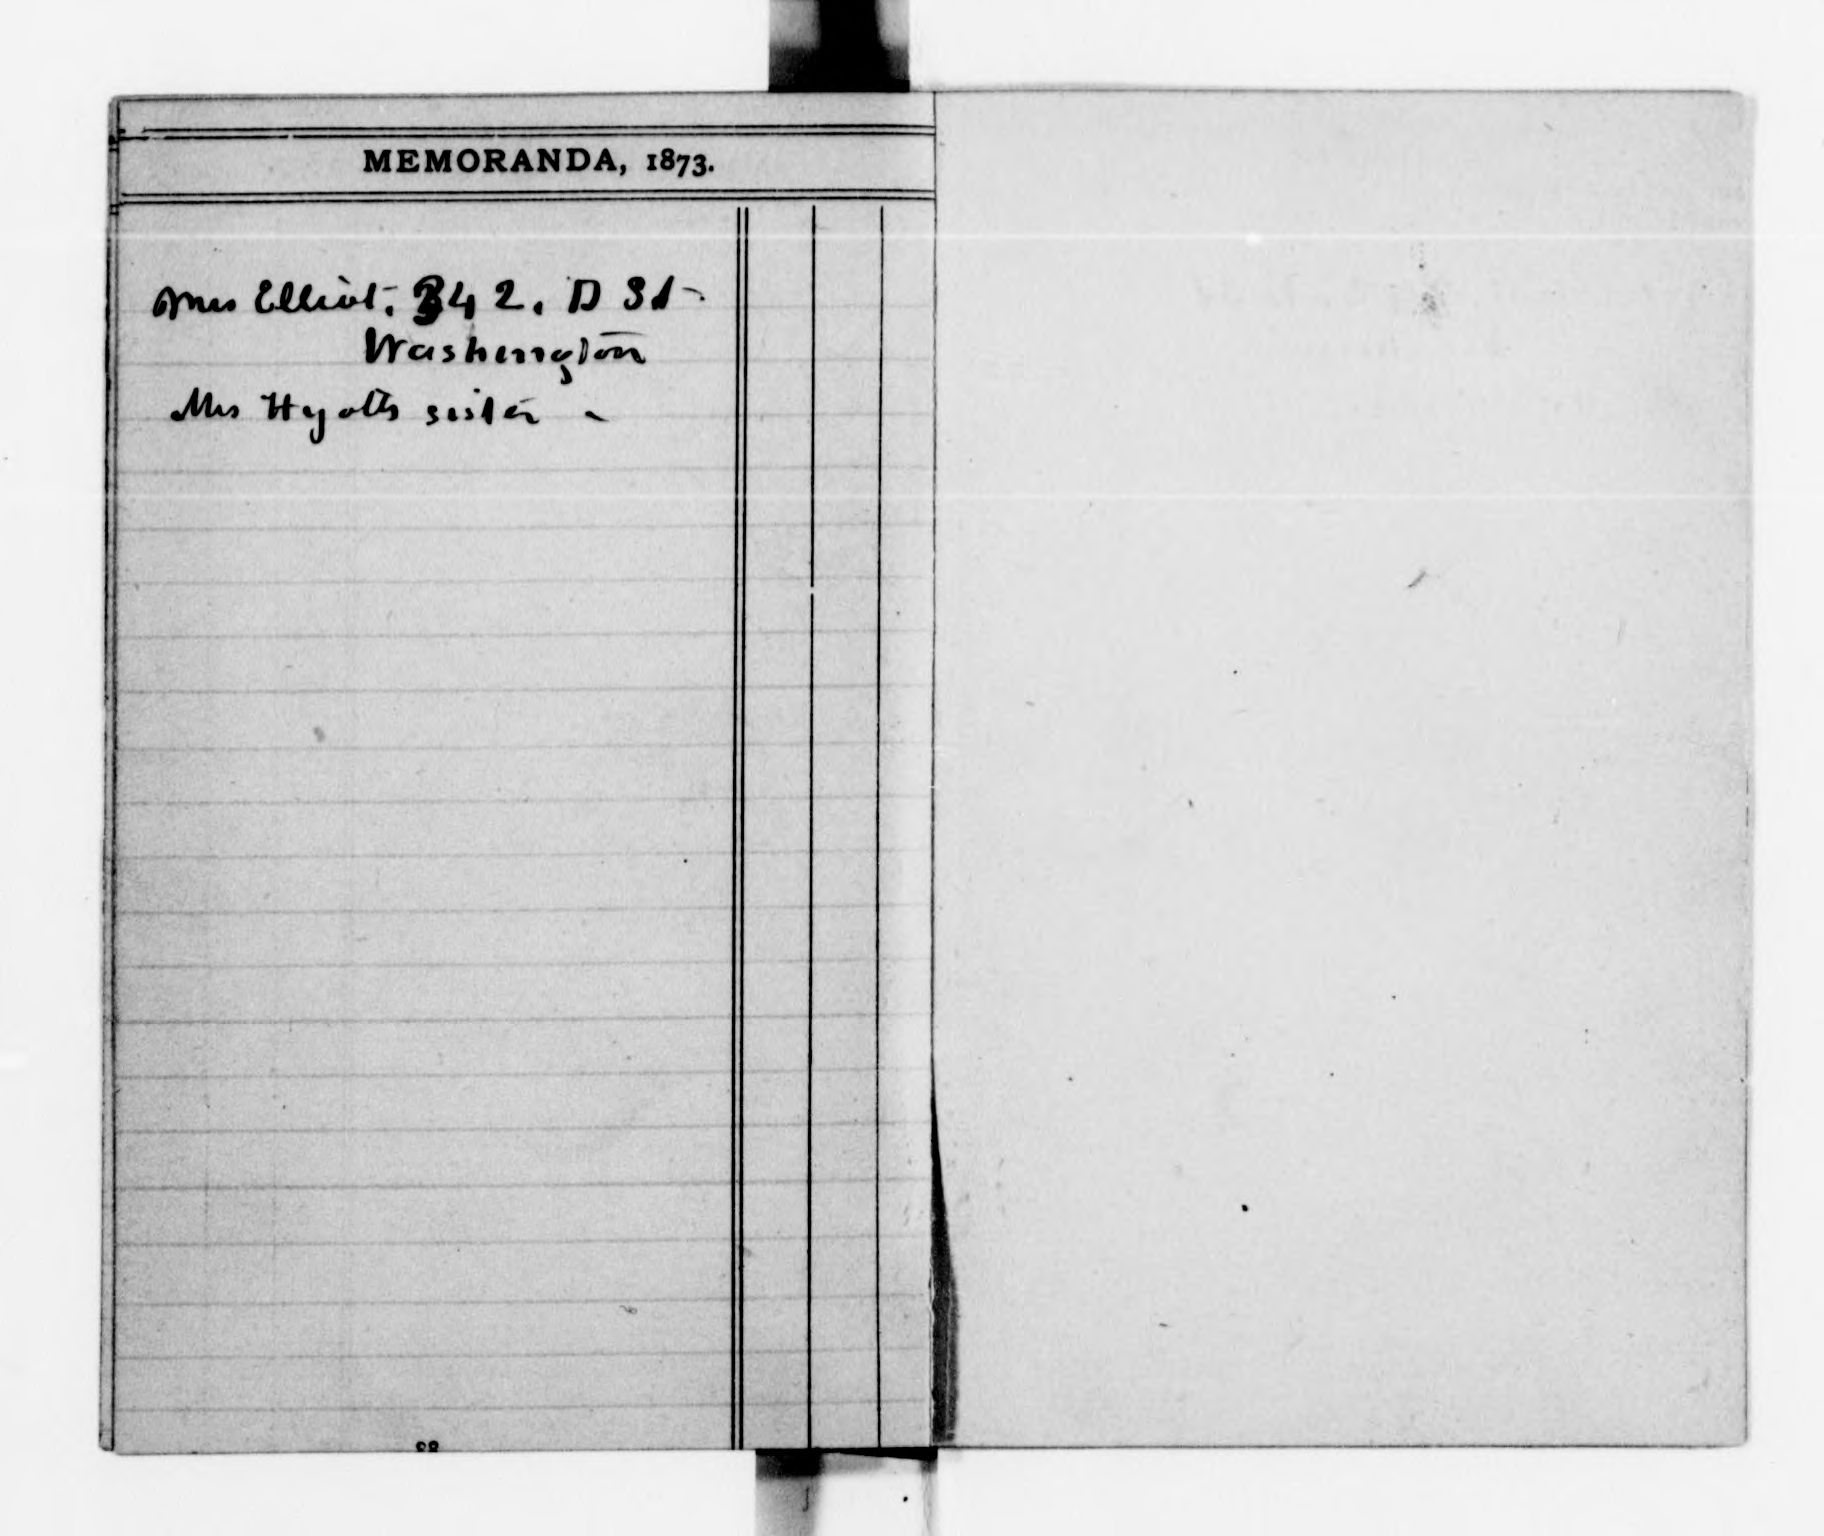 MEMORANDA, 1873.
Mrs Elliot, 342, D St
Washington
Mrs Hyatts sister -